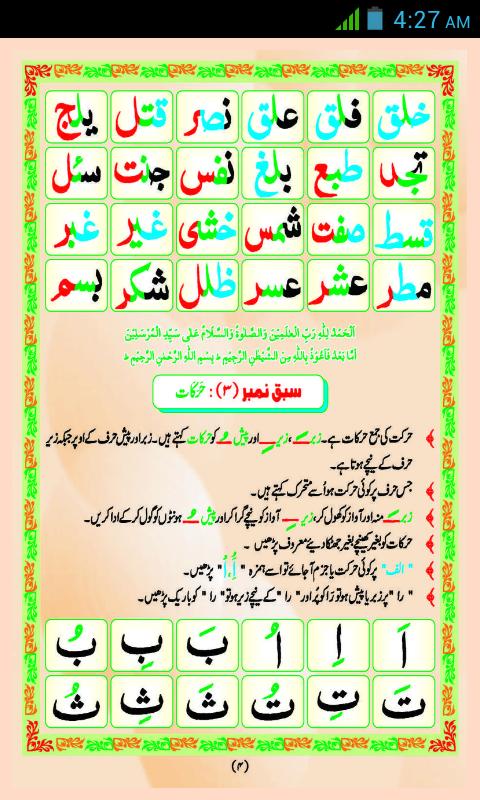 4:27 AM
خلق فلق علق نصر قتل یلج
تجد طبع بلغ نفس جنت سئل
قسط صفت شمس خشی غیر غبر
مطر عشر عسر ظلل شکر بسم
اَلْحَمْدُ لِلّٰهِ رَبِّ الْعٰلَمِیْنَ وَالصَّلٰوةُ وَالسَّلَامُ عَلٰی سَیِّدِ الْمُرْسَلِیْنَ
اَمَّا بَعْدُ فَاَعُوْذُ بِاللّٰهِ مِنَ الشَّیْطٰنِ الرَّجِیْمِ ؕ بِسْمِ اللّٰهِ الرَّحْمٰنِ الرَّحِیْمِ ؕ
سبق نمبر (۳) : حَرَکَات
حرکت کی جمع حرکات ہے۔ زبر ــَـ ، زیر ــِـ اور پیش ــُـ کو حرکات کہتے ہیں۔ زبر اور پیش حرف کے اوپر جبکہ زیر
حرف کے نیچے ہوتا ہے۔
جس حرف پر کوئی حرکت ہو اُسے متحرک کہتے ہیں۔
زبر ــَـ منہ اور آواز کو کھول کر، زیر ــِـ آواز کو نیچے گرا کر اور پیش ــُـ ہونٹوں کو گول کر کے ادا کریں۔
حرکات کو بغیر کھینچے بغیر جھٹکا دیے معروف پڑھیں۔
" الف " پر کوئی حرکت یا جزم آجائے تو اسے ہمزہ " أ، أُ " پڑھیں۔
" را " پر زبر یا پیش ہو تو را کو پُر اور " را " کے نیچے زیر ہو تو " را " کو باریک پڑھیں۔
اَ اِ اُ بَ بِ بُ
تَ تِ تُ ثَ ثِ ثُ
(۴)